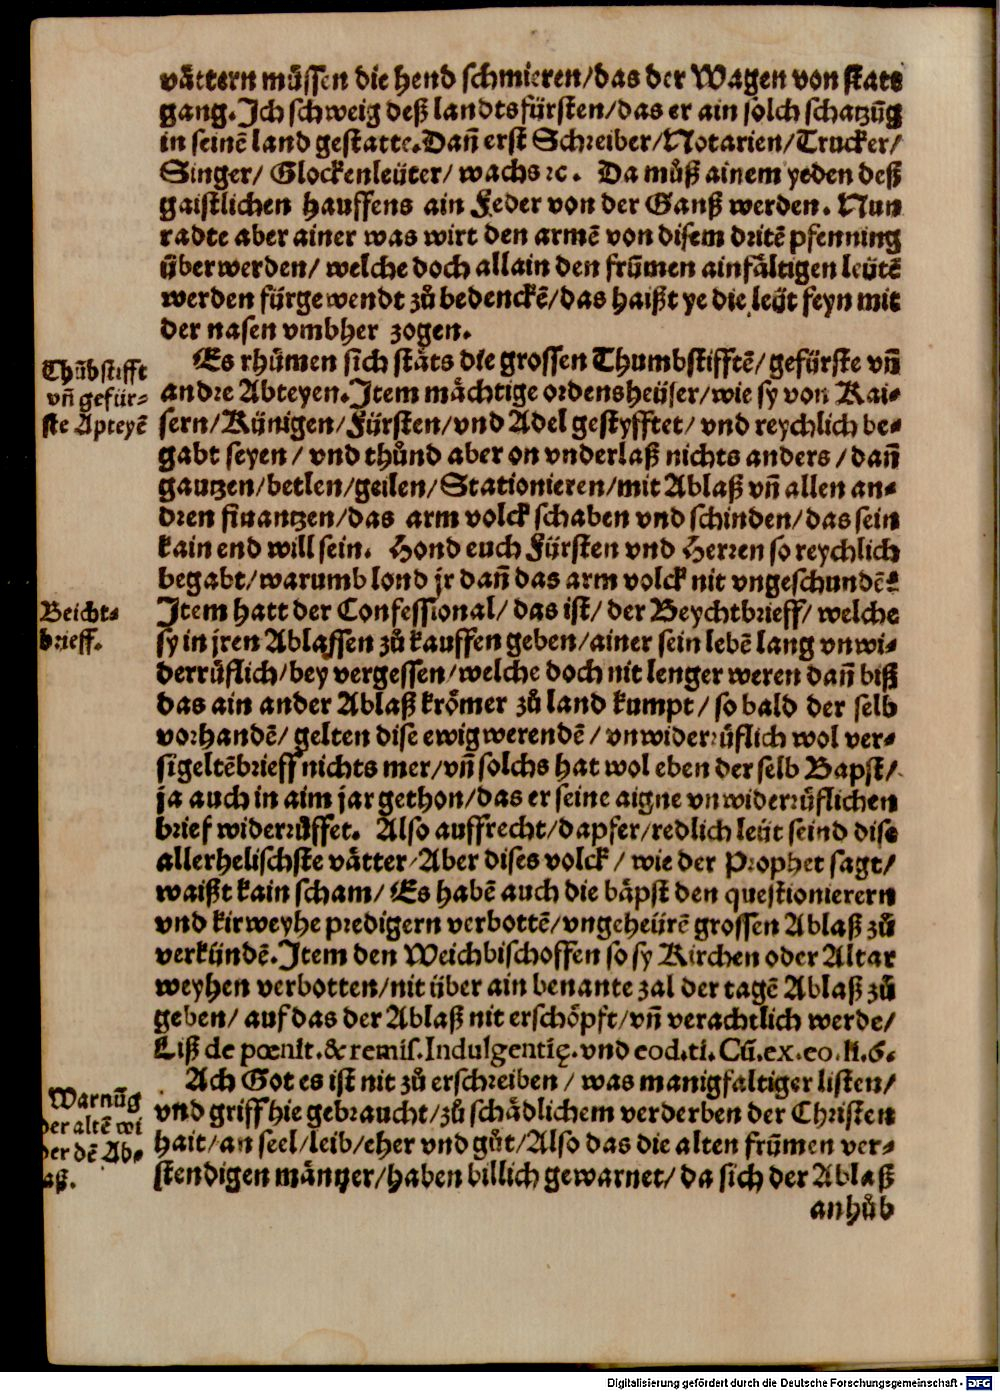 vättern müssen die hend schmieren/das der Wagen von stats
gang. Jch schweig deß landtsfürsten/das er ain solch schatzūg
in seinē land gestatte. Dañ erst Schreiber/Notarien/Trucker/
Singer/ Glockenleüter/ wachs ꝛc. Da můß ainem yeden deß
gaistlichen hauffens ain Feder von der Ganß werden. Nun
radte aber ainer was wirt den armē von disem dritē pfenning
überwerden/ welche doch allain den frūmen ainfältigen leütē
werden fürgewendt zů bedenckē/das haißt ye die leüt feyn mit
der nasen vmbher zogen.
Thūbstifft
vñ gefür-
ste Apteyē
Es rhůmen sich stäts die grossen Thumbstifftē/ gefürste vñ
andre Abteyen. Jtem mächtige ordensheüser/wie sy von Kai-
sern/Künigen/Fürsten/vnd Adel gestyfftet/ vnd reychlich be-
gabt seyen/ vnd thůnd aber on vnderlaß nichts anders/ dañ
gautzen/betlen/geilen/Stationieren/mit Ablaß vñ allen an-
dren finantzen/das arm volck schaben vnd schinden/das sein
kain end will sein. Hond euch Fürsten vnd Herren so reychlich
begabt/warumb lond jr dañ das arm volck nit vngeschundē?
Beicht-
brieff.
Jtem hatt der Confessional/ das ist/ der Beychtbrieff/ welche
sy in jren Ablassen zů kauffen geben/ainer sein lebē lang vnwi-
derrůflich/bey vergessen/welche doch nit lenger weren dañ biß
das ain ander Ablaß krömer zů land kumpt/ so bald der selb
vorhandē/ gelten dise ewigwerendē/ vnwiderrůflich wol ver-
sigeltēbrieff nichts mer/vñ solchs hat wol eben der selb Bapst/
ja auch in aim jar gethon/das er seine aigne vnwiderrůflichen
brief widerrůffet. Also auffrecht/dapfer/redlich leüt seind dise
allerhelischste vätter/Aber dises volck/ wie der Prophet sagt/
waißt kain scham/ Es habē auch die bäpst den questionierern
vnd kirweyhe predigern verbottē/vngeheürē grossen Ablaß zů
verkündē. Jtem den Weichbischoffen so sy Kirchen oder Altar
weyhen verbotten/nit über ain benante zal der tagē Ablaß zů
geben/ auf das der Ablaß nit erschöpft/vñ verachtlich werde/
Liß de pœnit. & remis. Indulgentię. vnd eod. ti. Cū. ex. eo. li. 6.
Warnūg
der altē wi
der dē Ab-
laß.
Ach Got es ist nit zů erschreiben/ was manigfaltiger listen/
vnd griff hie gebraucht/zů schädlichem verderben der Christen
hait/an seel/leib/eher vnd gůt/Also das die alten frūmen ver-
stendigen männer/haben billich gewarnet/ da sich der Ablaß
anhůb
Digitalisierung gefördert durch die Deutsche Forschungsgemeinschaft - DFG